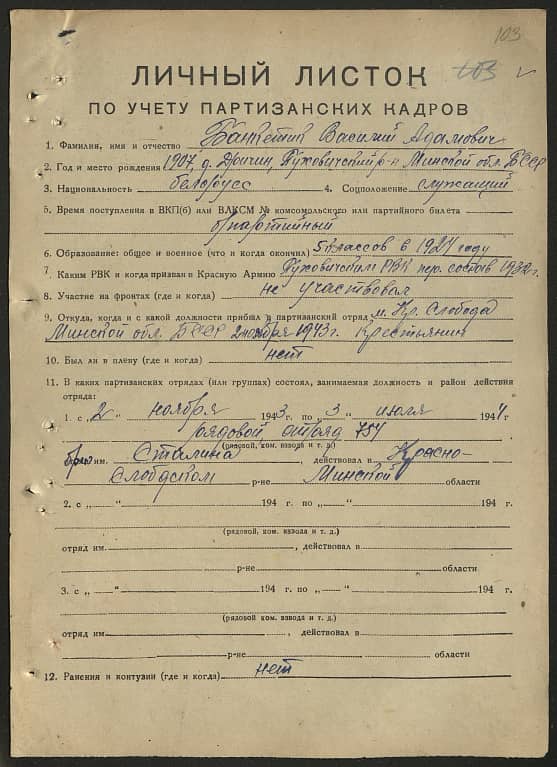 103
103
ЛИЧНЫЙ ЛИСТОК
ПО УЧЕТУ ПАРТИЗАНСКИХ КАДРОВ
1. Фамилия, имя и отчество Василий Адамович
2. Год и место рождения 1907, д. Дричин, Пуховичский р-н Минской обл. БССР
3. Национальность белорусс 4. Соцположение служащий
5. Время поступления в ВКП(б) или ВЛКСМ № комсомольского или партийного билета
б/партийный
6. Образование: общее и военное (что и когда окончил) 5 классов в 1924 году
7. Каким РВК и когда призван в Красную Армию Пуховичским РВК пер. состав 1932 г.
8. Участие на фронтах (где и когда) не участвовал
9. Откуда, когда и с какой должности прибыл в партизанский отряд м. Кр. Слобода
Минской обл. БССР 2 ноября 1943 г. Крестьянин
10. Был ли в плену (где и когда) нет
11. В каких партизанских отрядах (или группах) состоял, занимаемая должность и район действия
отряда:
1. с „2“ ноября 1943 г. по „3“ июля 1944 г.
рядовой отряд 754
(рядовой, ком. взвода и т. д.)
бриг им. Сталина, действовал в Красно-
Слободском р-не Минской области
2. с „ “ 194 г. по „ “ 194 г.
(рядовой, ком. взвода и т. д.)
отряд им. , действовал в
р-не области
3. с „ “ 194 г. по „ “ 194 г.
(рядовой, ком. взвода и т. д.)
отряд им. , действовал в
р-не области
12. Ранения и контузии (где и когда) нет